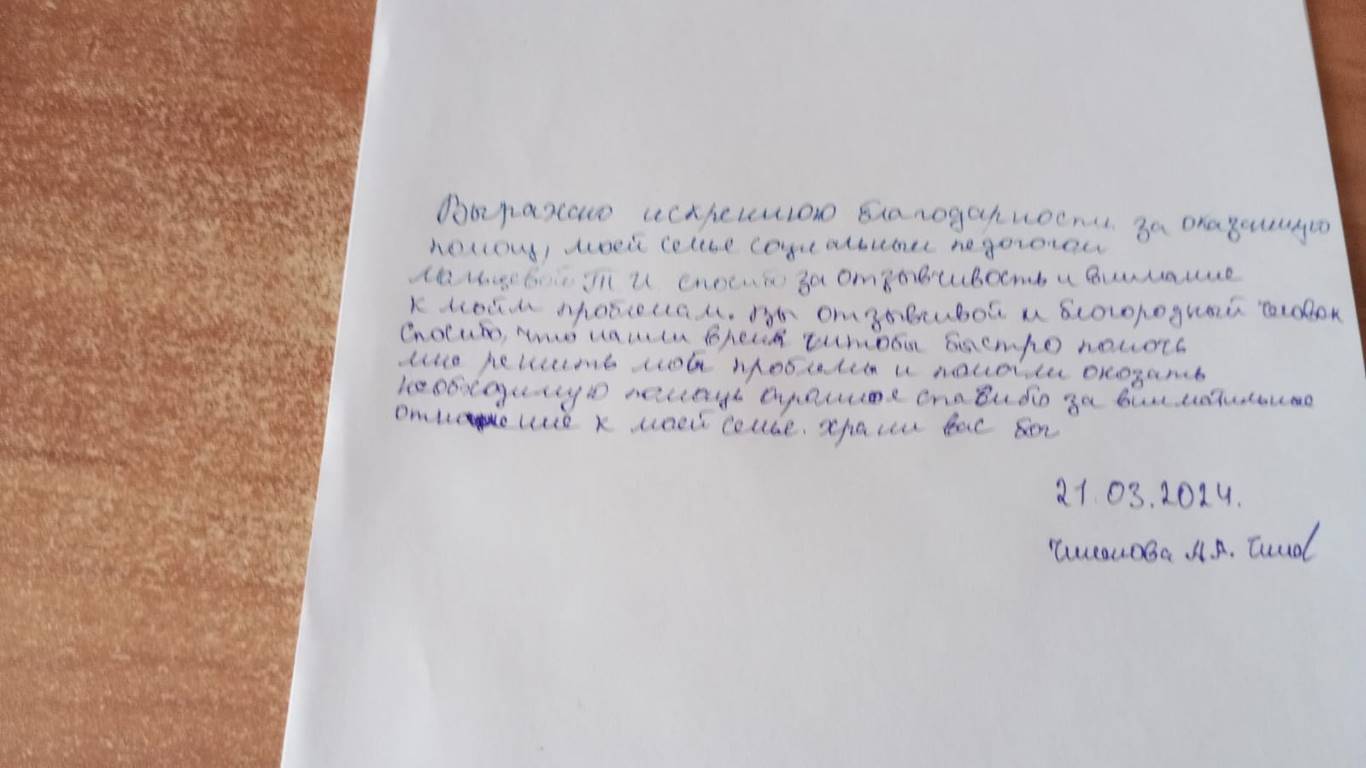 Выражаю искреннюю благодарности за оказанную
помощ, моей семье социальным педогогом
Мальцевой Т И спосибо за отзывчивость и внимание
к мойм проблемам. вы отзывчивой и благородный человек
Спосибо, что нашли время читобы быстро помочь
мне решить мои проблемы и помогли оказать
необходимую помощь огромное спасибо за внимательные
отношение к моей семье. храни вас бог
21.03.2024.